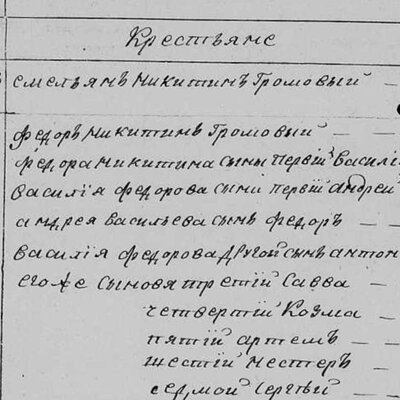 Крестьяне
Емельянъ Никитинъ Громовый
Федоръ Никитинъ Громовый
Федора Никитина сыны первій Василі
Василія Федорова сыны первій Андрей
Андрея Васильева сынъ Федоръ
Василія Федорова другой сынъ Антон
Его же сыновя третій Савва
четвертій Козма
пятій Артемъ
шестій Нестеръ
седмой Сергѣй